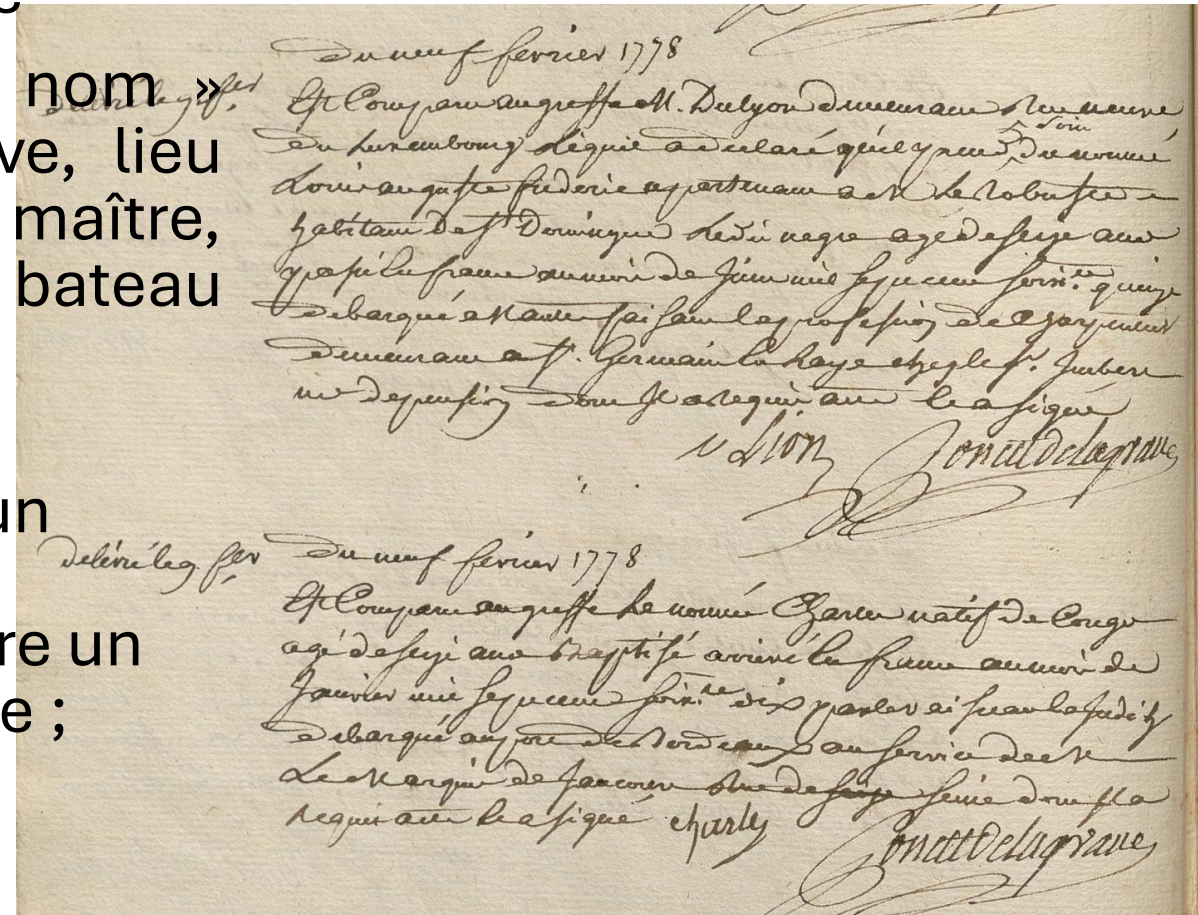 nom »
ve, lieu
maître,
bateau
un
re un
e ;
Du neuf fevrier 1778
Est Comparu au greffe M. Dulyon demeurant Rue neuve
Du Luxembourg Lequel a declaré qu'il prend soin Du nommé
Louis auguste frederic apartenant a M Le Robuste
habitant De St Domingue Ledit negre agé de seize ans
passé en france au mois de Juin mil sept cent soixte quinze
debarqué a Nantes faisant la profession de
demeurant a St. Germain En Laye chez le Sr. Imbert
Me de pension dont Il a requis acte et a signé
Lion
Poncet Delagrave
délivré le 9 fer
Du neuf fevrier 1778
Est Comparu au greffe Le nommé Charles natif de Congo
agé de seize ans Baptisé arrivé En france au mois de
Janvier mil sept cent soixte dix par le vaisseau la Judith
debarqué au port de Bordeaux au service de M
Le Marquis de Jaucourt Rue de seine dont Il a
requis acte et a signé charles
Poncet Delagrave